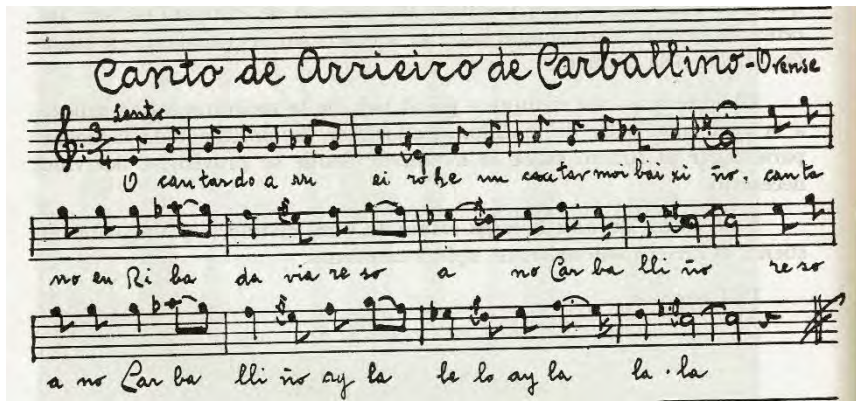 Canto de Arrieiro de Carballino - Orense
Lento
3/4
O cantar do a rri ei ro he un cantar moi bai xi ño, canta
no en Ri ba da via re so a no Car ba lli ño re so
a no Car ba lli ño ay la le lo ay la la - la